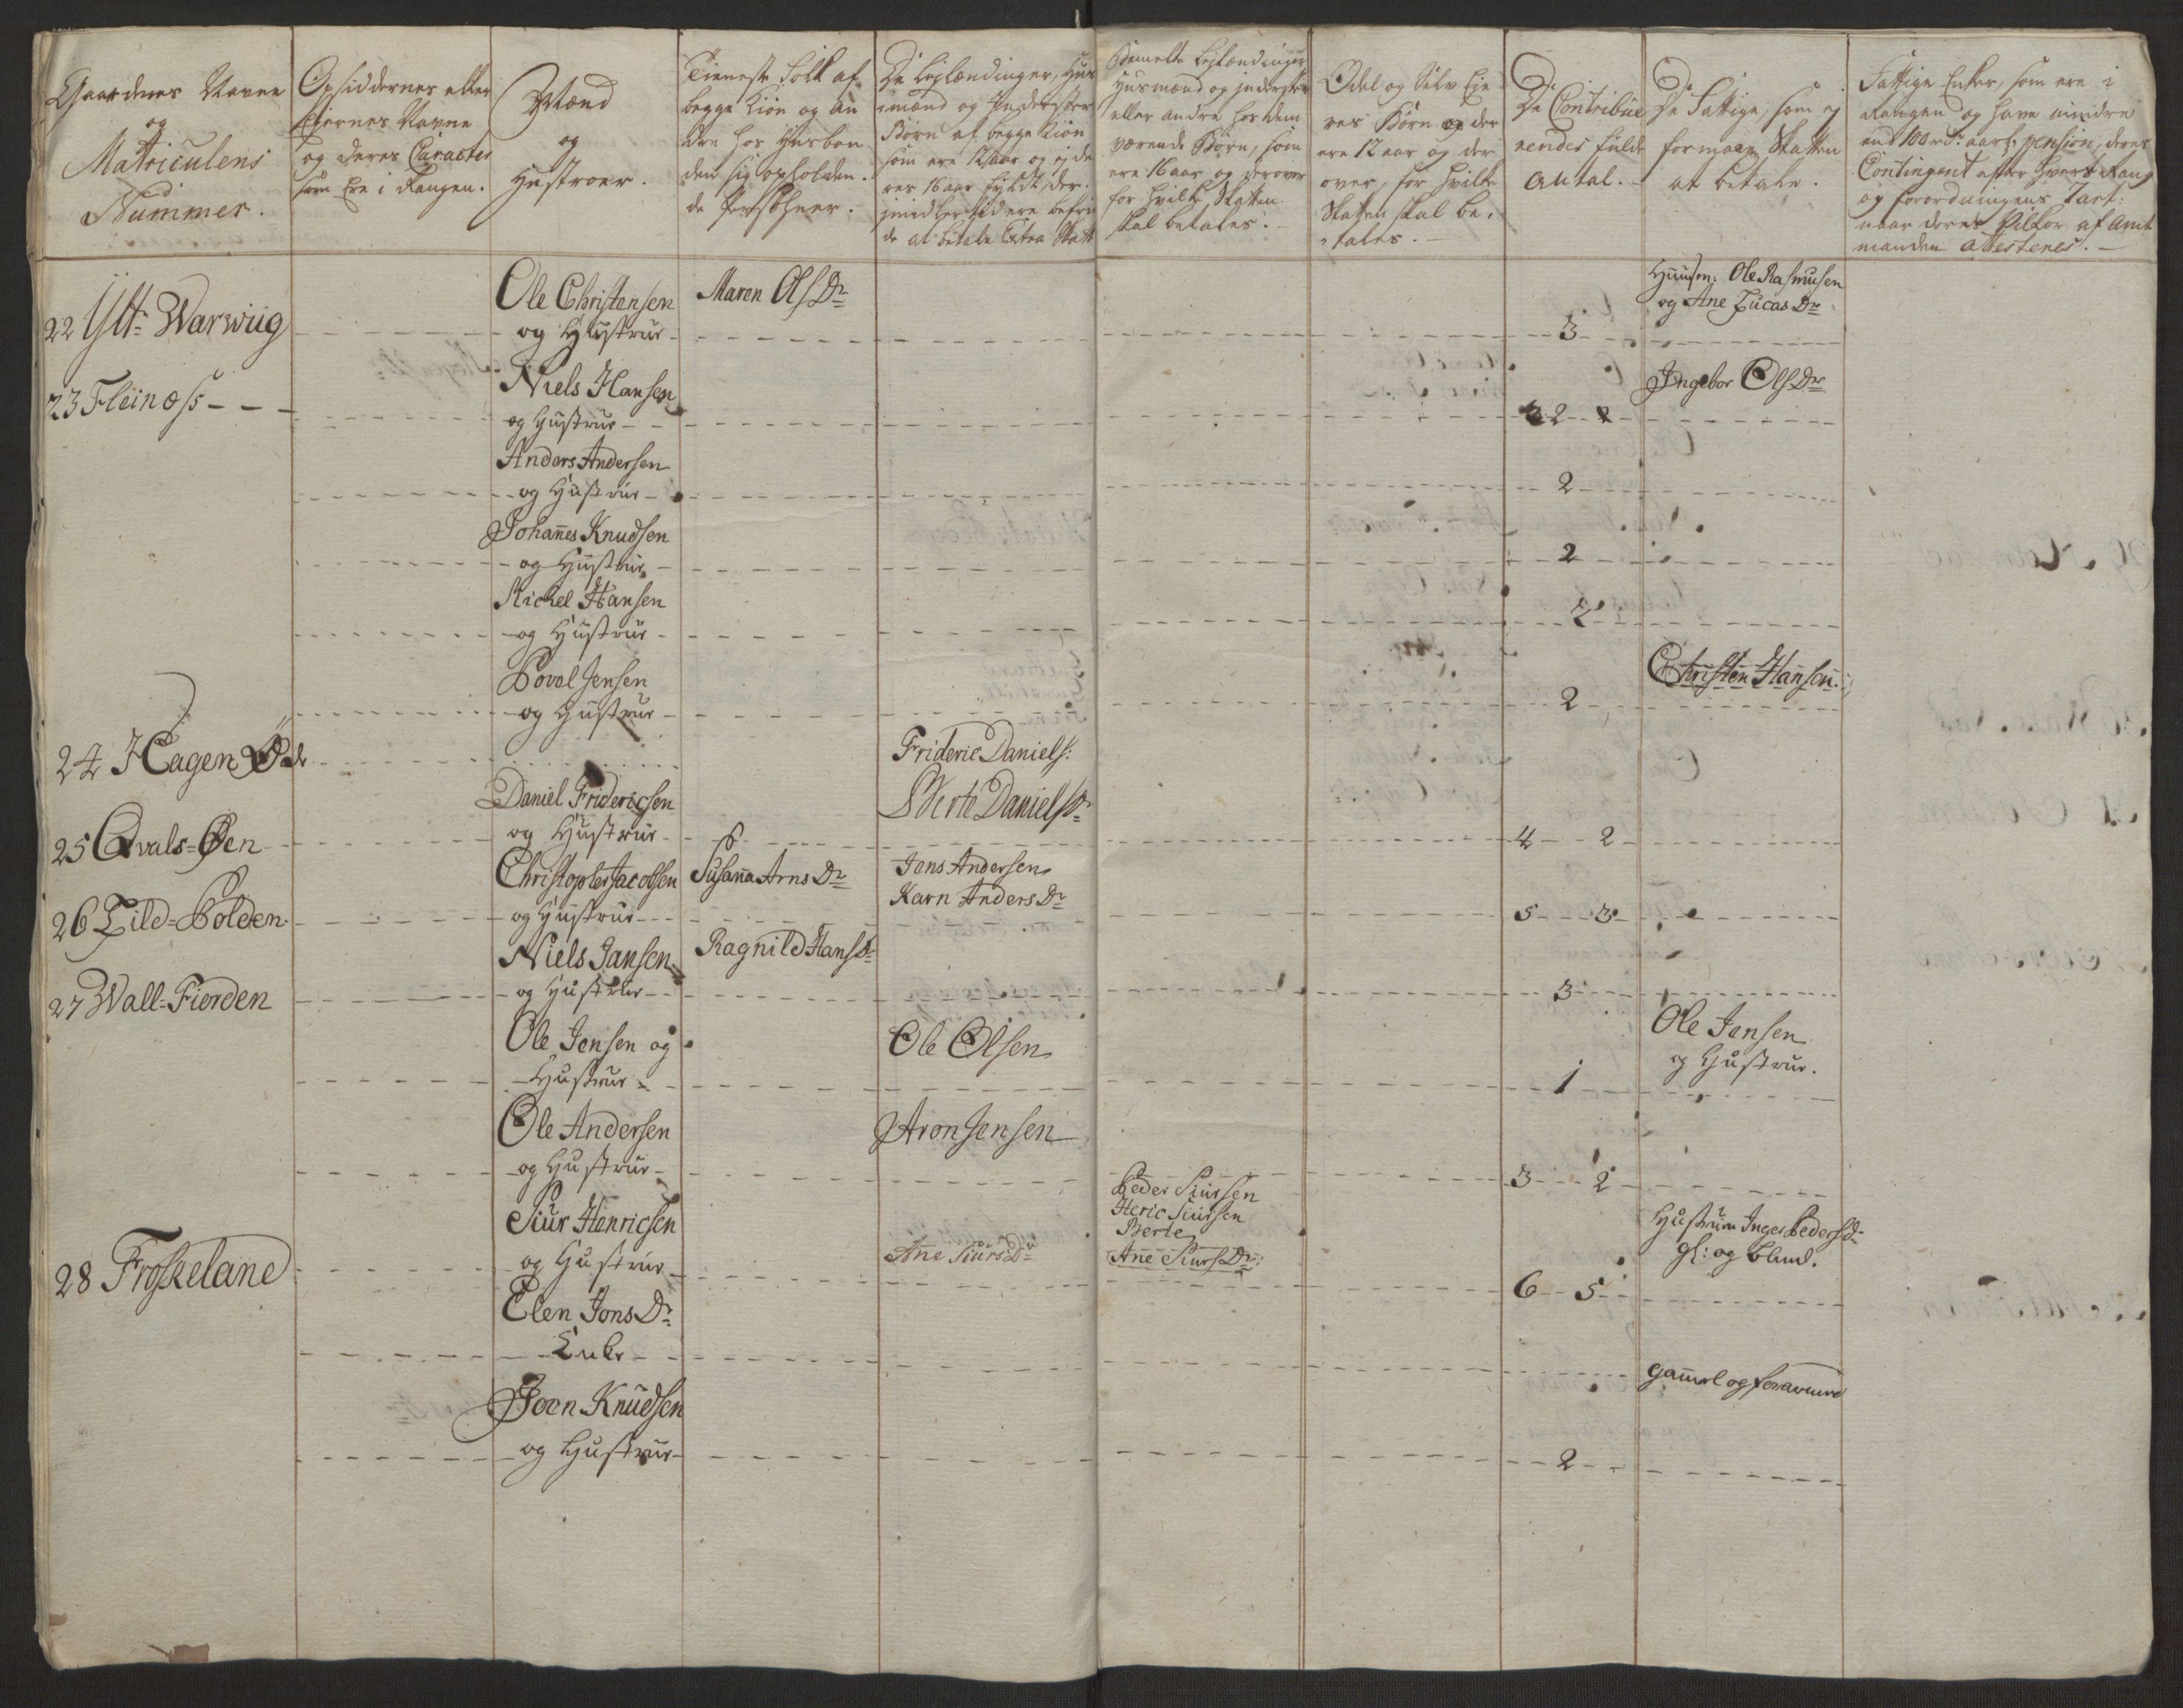 Gaardenes Navne
og
Matriculens
Nummer.
Opsiddernes eller
Eiernes Navne
og deres Caracter
som Ere i Rangen.
Mænd
og
Hustroer.
Tieneste Folk af
begge Kiøn og an
dre hos Husbon
den sig opholden
de Persohner.
De Leylændinger, Huus
mænd og Inderster
Børn af begge Kiøn
som ere 12 aar og ej de
res 16 aar fyldt, der
imidlertid ere befri
de at betale Extra Skatt
Bemelte Leylændinger
Husmænd og inderster
eller andre hos dem
værende Børn, som
ere 16 aar og derover
for hvilke Skatten
skal betales.
Odel og Selv Eie
res Børn og der
ere 12 aar og der
over, for hvilke
Skatten skal be,
tales.
De Contribue
rendes fulde
Antal.
De Fattige, som ej
formaar Skatten
at betale.
Fattige Enker, som ere i
Rangen og have mindre
end 100 rd: aarl: pension, deres
Contingent efter hvers Rang
og forordningens Tart:
naar deres Vilkor af Amt
manden attesteres.
22 Ytt: Warwiig
Ole Christensen
og Hustrue
Maren OlsDr
3
Huusm: Ole Rasmusen
og Ane LucasDr
23 Fleinæss
Niels Hansen
og Hustrue
2
Ingebor OlsDr
Anders Andersen
og Hustrue
2
Johanes Knudsen
og Hustrue
2
Michel Hansen
og Hustrue
2
Povel Jensen
og Hustrue
2
Christen Hansen
24 Hagen Øde
Frideric Daniels:
Berte DanielsDr
25 Qvals-Øen
Daniel Fridericsen
og Hustrue
4 2
26 Lild-Polden
Christopher Jacobsen
og Hustrue
Susana ArnsDr
Jens Andersen
Karn AndersDr
5 3
27 Wall-Fiorden
Niels Jansen
og Hustrue
Ragnild HansDr
3
Ole Jensen og
Hustrue
Ole Olsen
1
Ole Jensen
og Hustrue.
Ole Andersen
og Hustrue
Aron Jensen
3 2
28 Froskeland
Siur Henricsen
og Hustrue
Ane SiursDr
Peder Siursen
Heric Siursen
Berte
Ane SiursDr
6 5
Hustrue Inger PedersDr
gl: og blind.
Elen JonsDr
Enke
gamel og foraremet
Joen Knudsen
og Hustrue
2